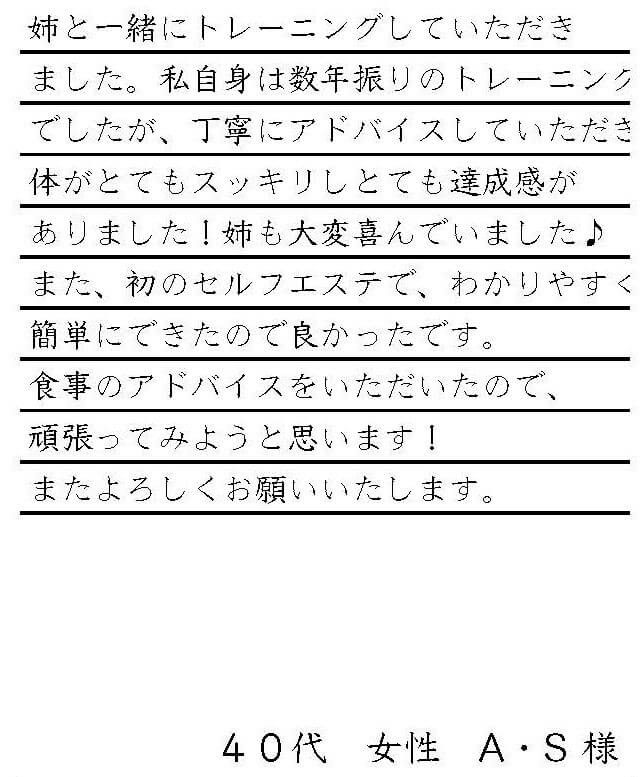 姉と一緒にトレーニングしていただき
ました。私自身は数年振りのトレーニング
でしたが、丁寧にアドバイスしていただき
体がとてもスッキリしとても達成感が
ありました！姉も大変喜んでいました♪
また、初のセルフエステで、わかりやすく
簡単にできたので良かったです。
食事のアドバイスをいただいたので、
頑張ってみようと思います！
またよろしくお願いいたします。
４０代　女性　A・S様